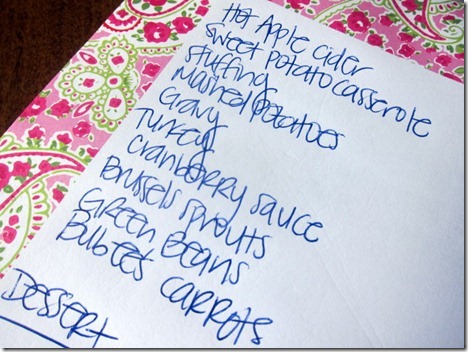 Hot Apple cider
Sweet potato casserole
Stuffing
Mashed potatoes
Gravy
Turkey
Cranberry sauce
Brussels sprouts
Green Beans
Bubbe's carrots
Dessert